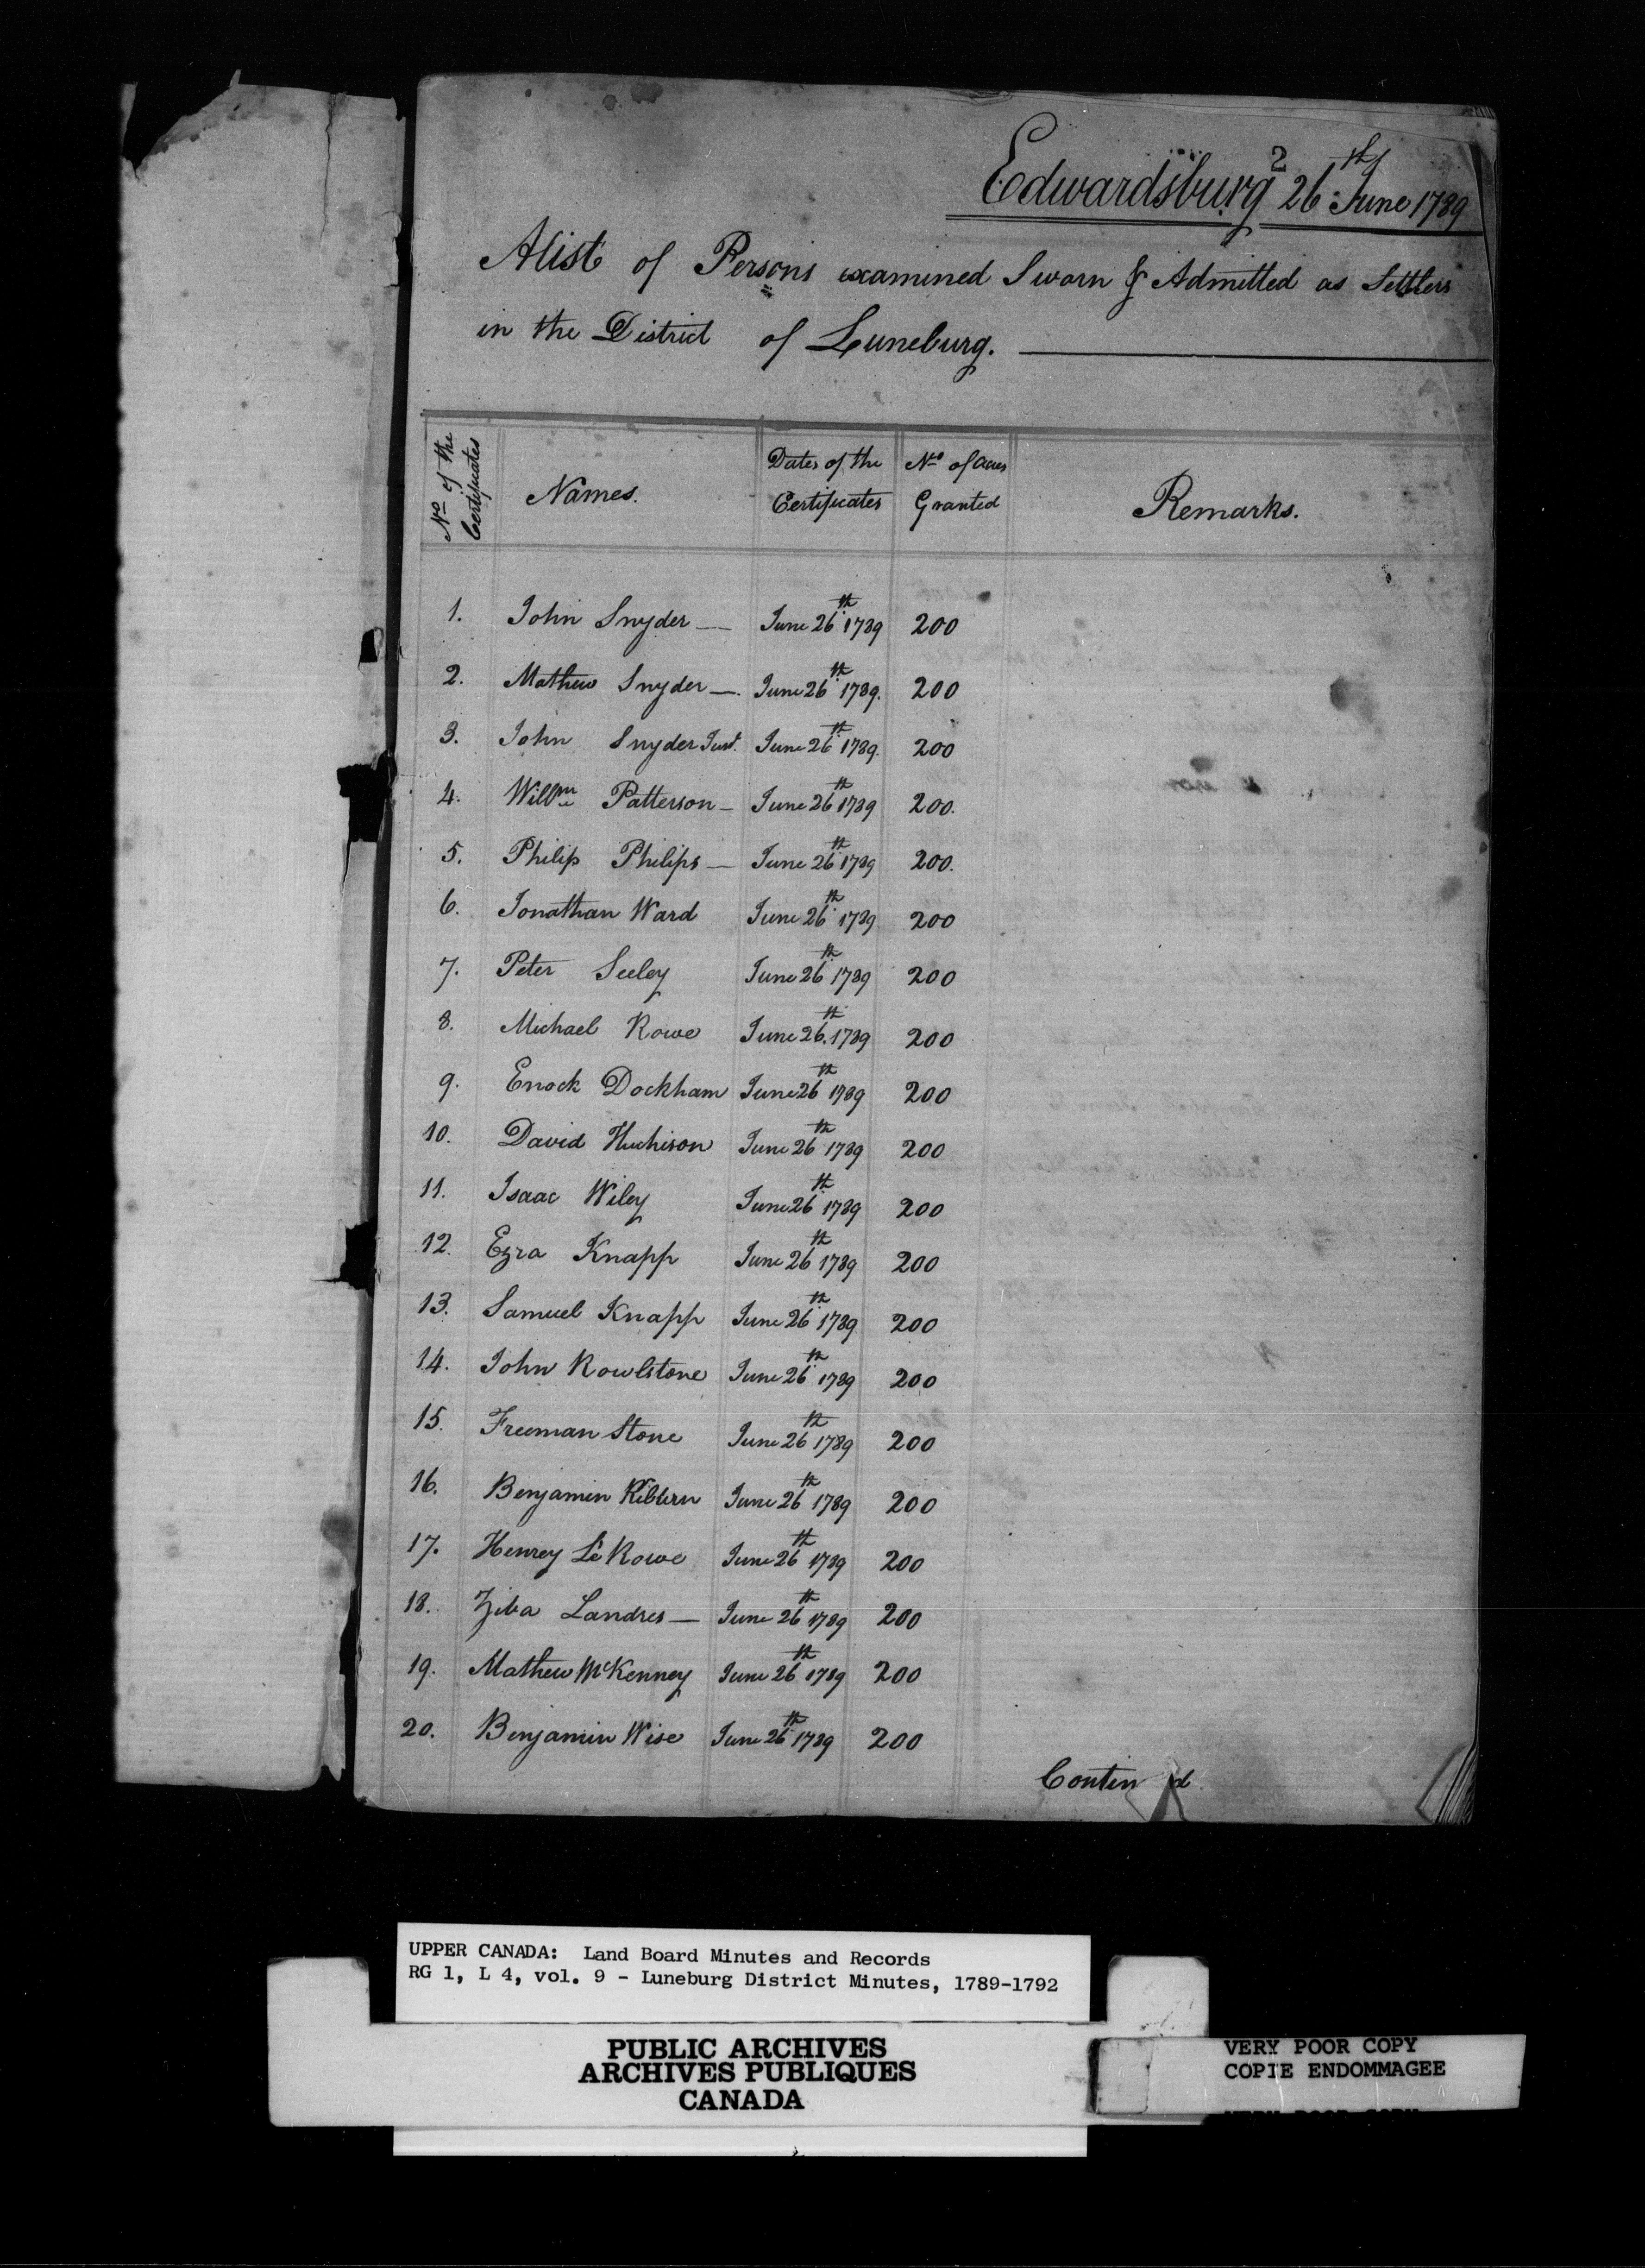 2
Edwardsburg 26th June 1789
A list of Persons examined Sworn & Admitted as Settlers
in the District of Luneburg.
No of the Certificates
Names.
Dates of the Certificates
No of Acres Granted
Remarks.
1. John Snyder — June 26th 1789 200
2. Mathew Snyder — June 26th 1789. 200
3. John Snyder Junr. June 26th 1789. 200
4. Willm Patterson — June 26th 1789 200.
5. Philip Philips — June 26th 1789 200.
6. Jonathan Ward June 26th 1789 200
7. Peter Seeley June 26th 1789 200
8. Michael Rowe June 26th 1789 200
9. Enock Dockham June 26th 1789 200
10. David Huchison June 26th 1789 200
11. Isaac Wiley June 26th 1789 200
12. Ezra Knapp June 26th 1789 200
13. Samuel Knapp June 26th 1789 200
14. John Rowlstone June 26th 1789 200
15. Freeman Stone June 26th 1789 200
16. Benjamin Kilburn June 26th 1789 200
17. Henrey Le Rowe June 26th 1789 200
18. Ziba Landres — June 26th 1789 200
19. Mathew McKenney June 26th 1789 200
20. Benjamin Wise June 26th 1789 200
Contin d
UPPER CANADA: Land Board Minutes and Records
RG 1, L 4, vol. 9 - Luneburg District Minutes, 1789-1792
PUBLIC ARCHIVES
ARCHIVES PUBLIQUES
CANADA
VERY POOR COPY
COPIE ENDOMMAGEE
VERY POOR COPY